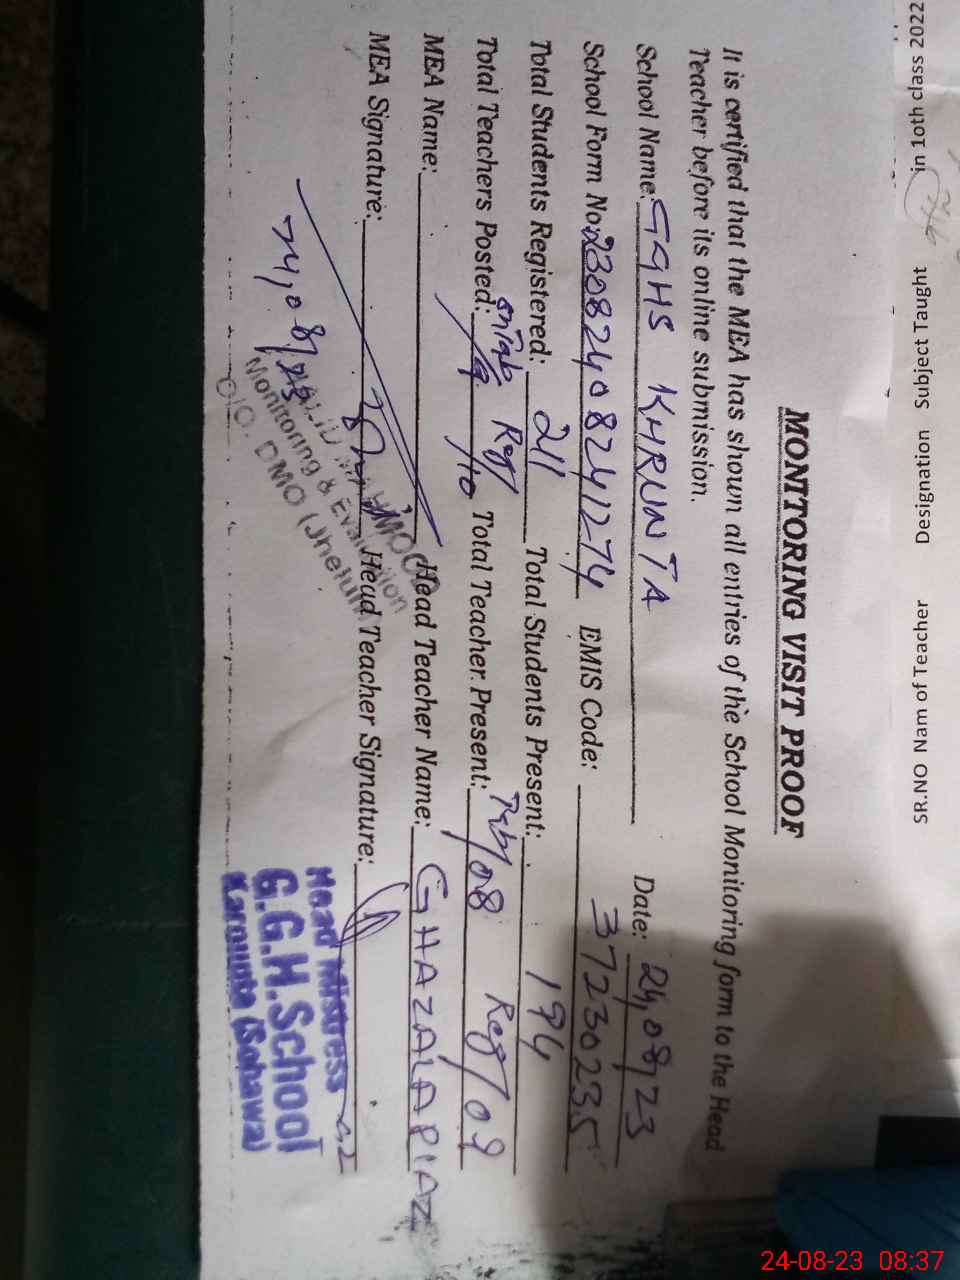 in 10th class 2022
SR.NO Nam of Teacher Designation Subject Taught
MONITORING VISIT PROOF
It is certified that the MEA has shown all entries of the School Monitoring form to the Head
Teacher before its online submission.
School Name: GGHS KHRUNTA Date: 24,08/23
School Form No: 23082408241274 EMIS Code: 37230235
Total Students Registered: 211 Total Students Present: 194
Total Teachers Posted: Reg/10 Total Teacher Present: /08 Reg/09
MEA Name: Head Teacher Name: GHAZALA RIAZ
MEA Signature: Head Teacher Signature:
24,08/23
Monitoring & Evaluation
O/O. DMO (Jhelum)
Head Mistress
G.G.H.School
Karounta (Sohawa)
24-08-23 08:37